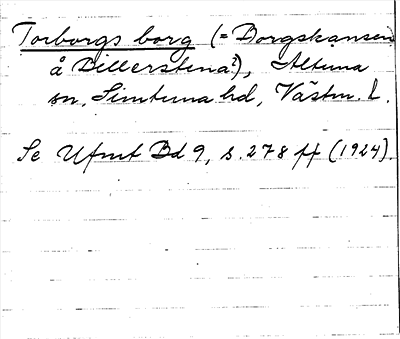 Torborgs borg (= Borgskansen
å Billerstena?), Altuna
sn, Simtuna hd, Västm. l.
Se Ufmt Bd 9, s. 278 ff (1924).